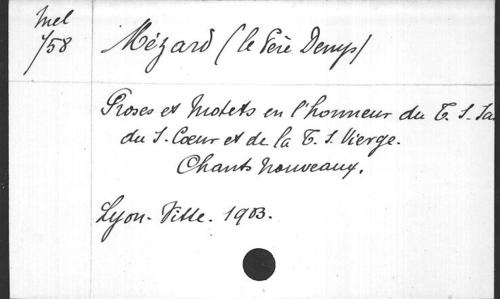 Mel
1/58
Mézard (le Père Denys)
Proses et Motets en l'honneur du T. S. Sa
du S. Cœur et de la T. S. Vierge.
Chants nouveaux.
Lyon. Vitte. 1903.